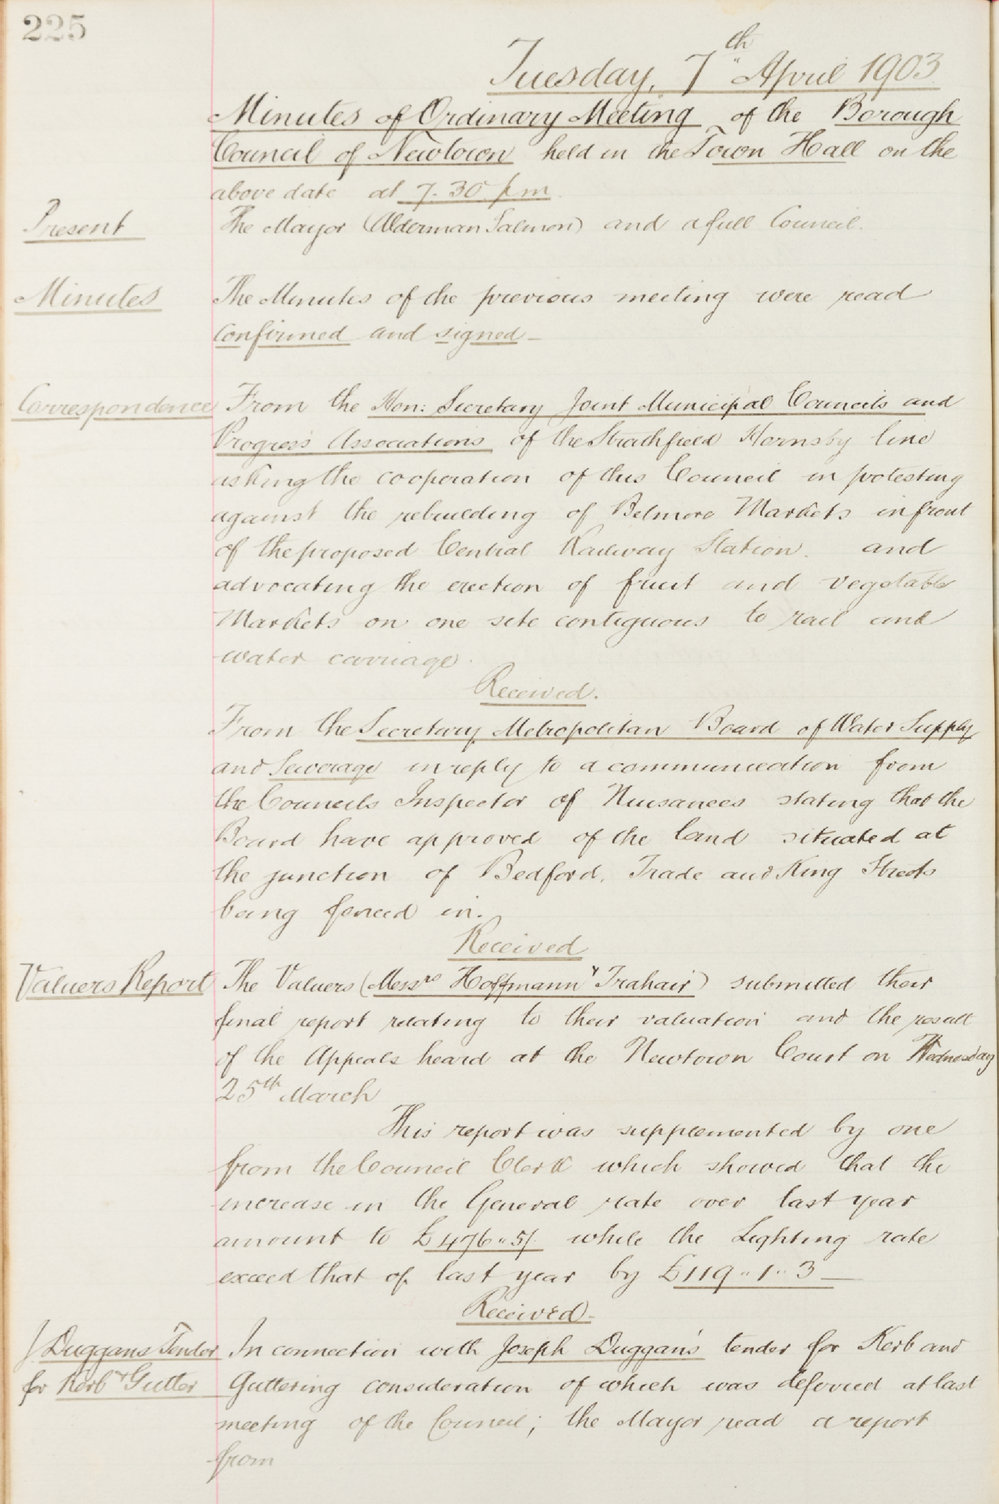 225
Tuesday, 7th April 1903
Minutes of Ordinary Meeting of the Borough
Council of Newtown held in the Town Hall on the
above date at 7.30 p.m.
Present
The Mayor (Alderman Salmon) and a full Council.
Minutes
The Minutes of the previous meeting were read
confirmed and signed –
Correspondence
From the Hon: Secretary Joint Municipal Councils and
Progress Associations of the Strathfield Hornsby line
asking the cooperation of this Council in protesting
against the rebuilding of Belmore Markets in front
of the proposed Central Railway Station. and
advocating the erection of fruit and vegetable
Markets on one site contiguous to rail and
water carriage.
Received.
From the Secretary Metropolitan Board of Water Supply
and Sewerage in reply to a communication from
the Councils Inspector of Nuisances stating that the
Board have approved of the land situated at
the junction of Bedford, Trade and King Streets
being fenced in.
Received
Valuers Report
The Valuers (Messrs Hoffmann & Trahair) submitted their
final report relating to their valuation and the result
of the Appeals heard at the Newtown Court on Wednesday
25th March
This report was supplemented by one
from the Council Clerk which showed that the
increase in the General rate over last year
amount to £476..5/- while the Lighting rate
exceed that of last year by £119..1..3 –
Received –
J Duggans Tender
for Kerb & Gutter
In connection with Joseph Duggan's tender for Kerb and
Guttering consideration of which was deferred at last
meeting of the Council; the Mayor read a report
from